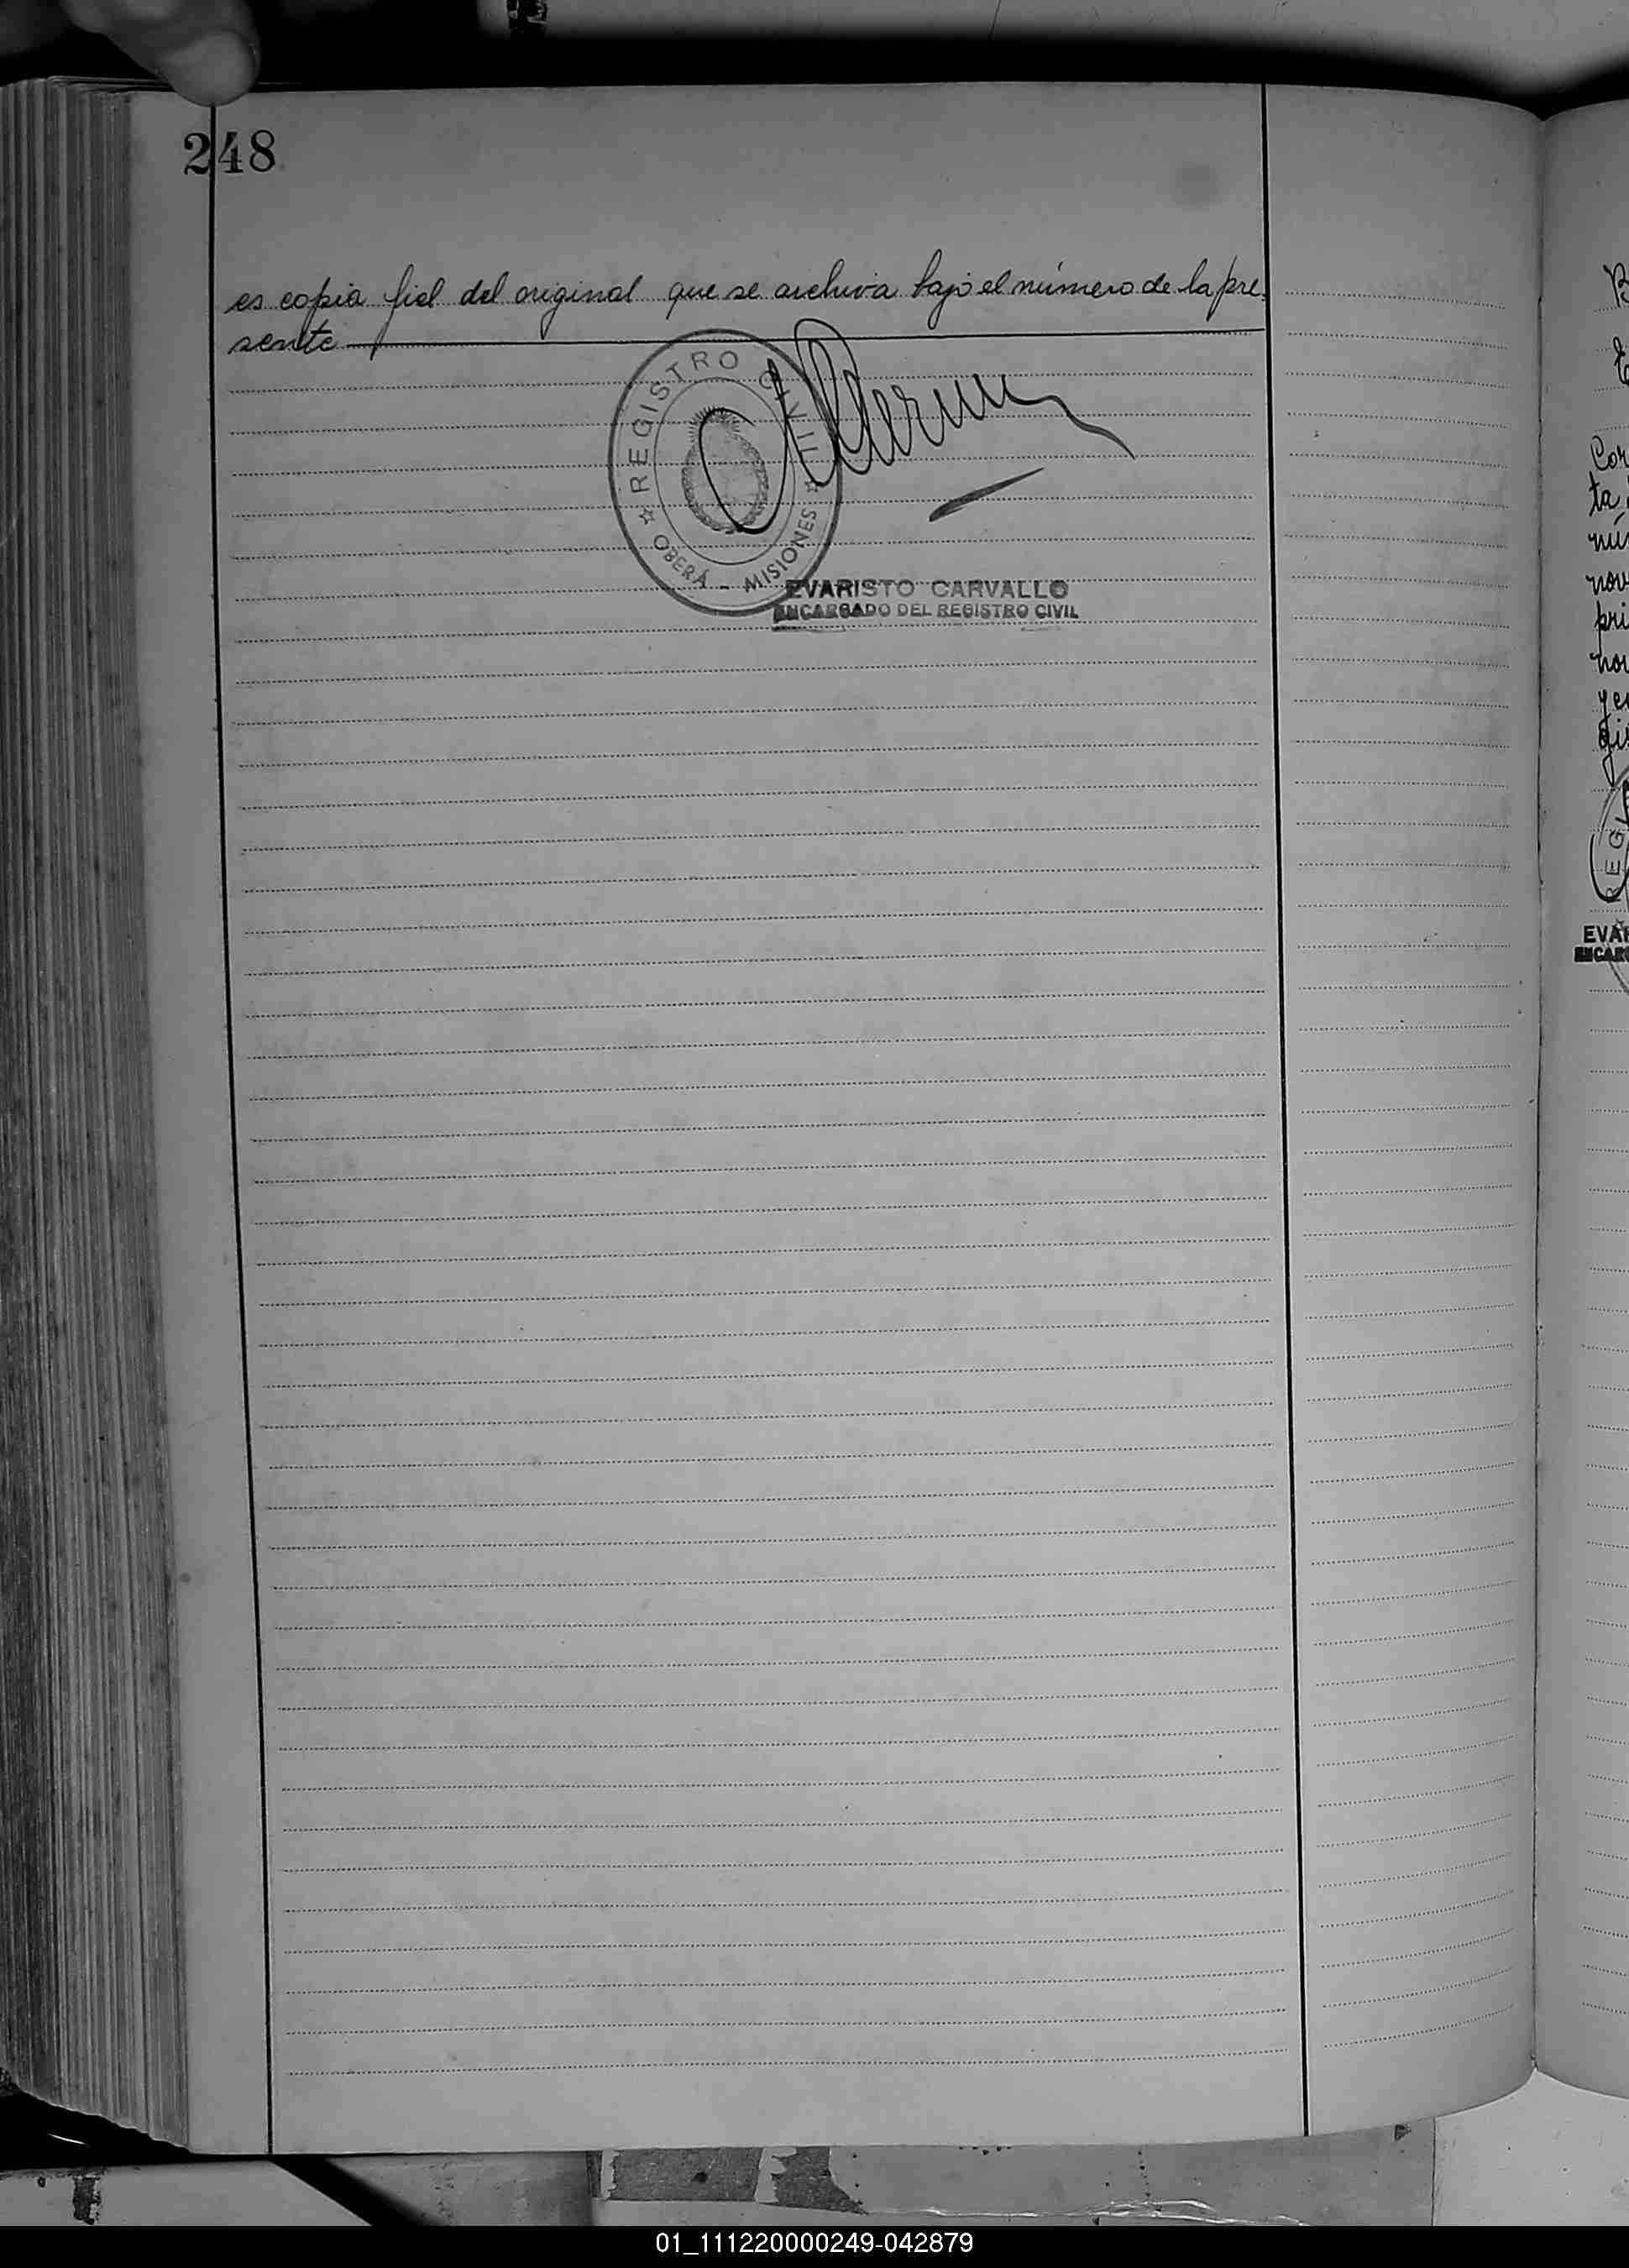 248
es copia fiel del original que se archiva bajo el número de la pre-
sente
REGISTRO CIVIL
OBERÁ - MISIONES
EVARISTO CARVALLO
ENCARGADO DEL REGISTRO CIVIL
Cor
ta
nú
nov
pri
REG
EVAR
ENCARG
01_111220000249-042879